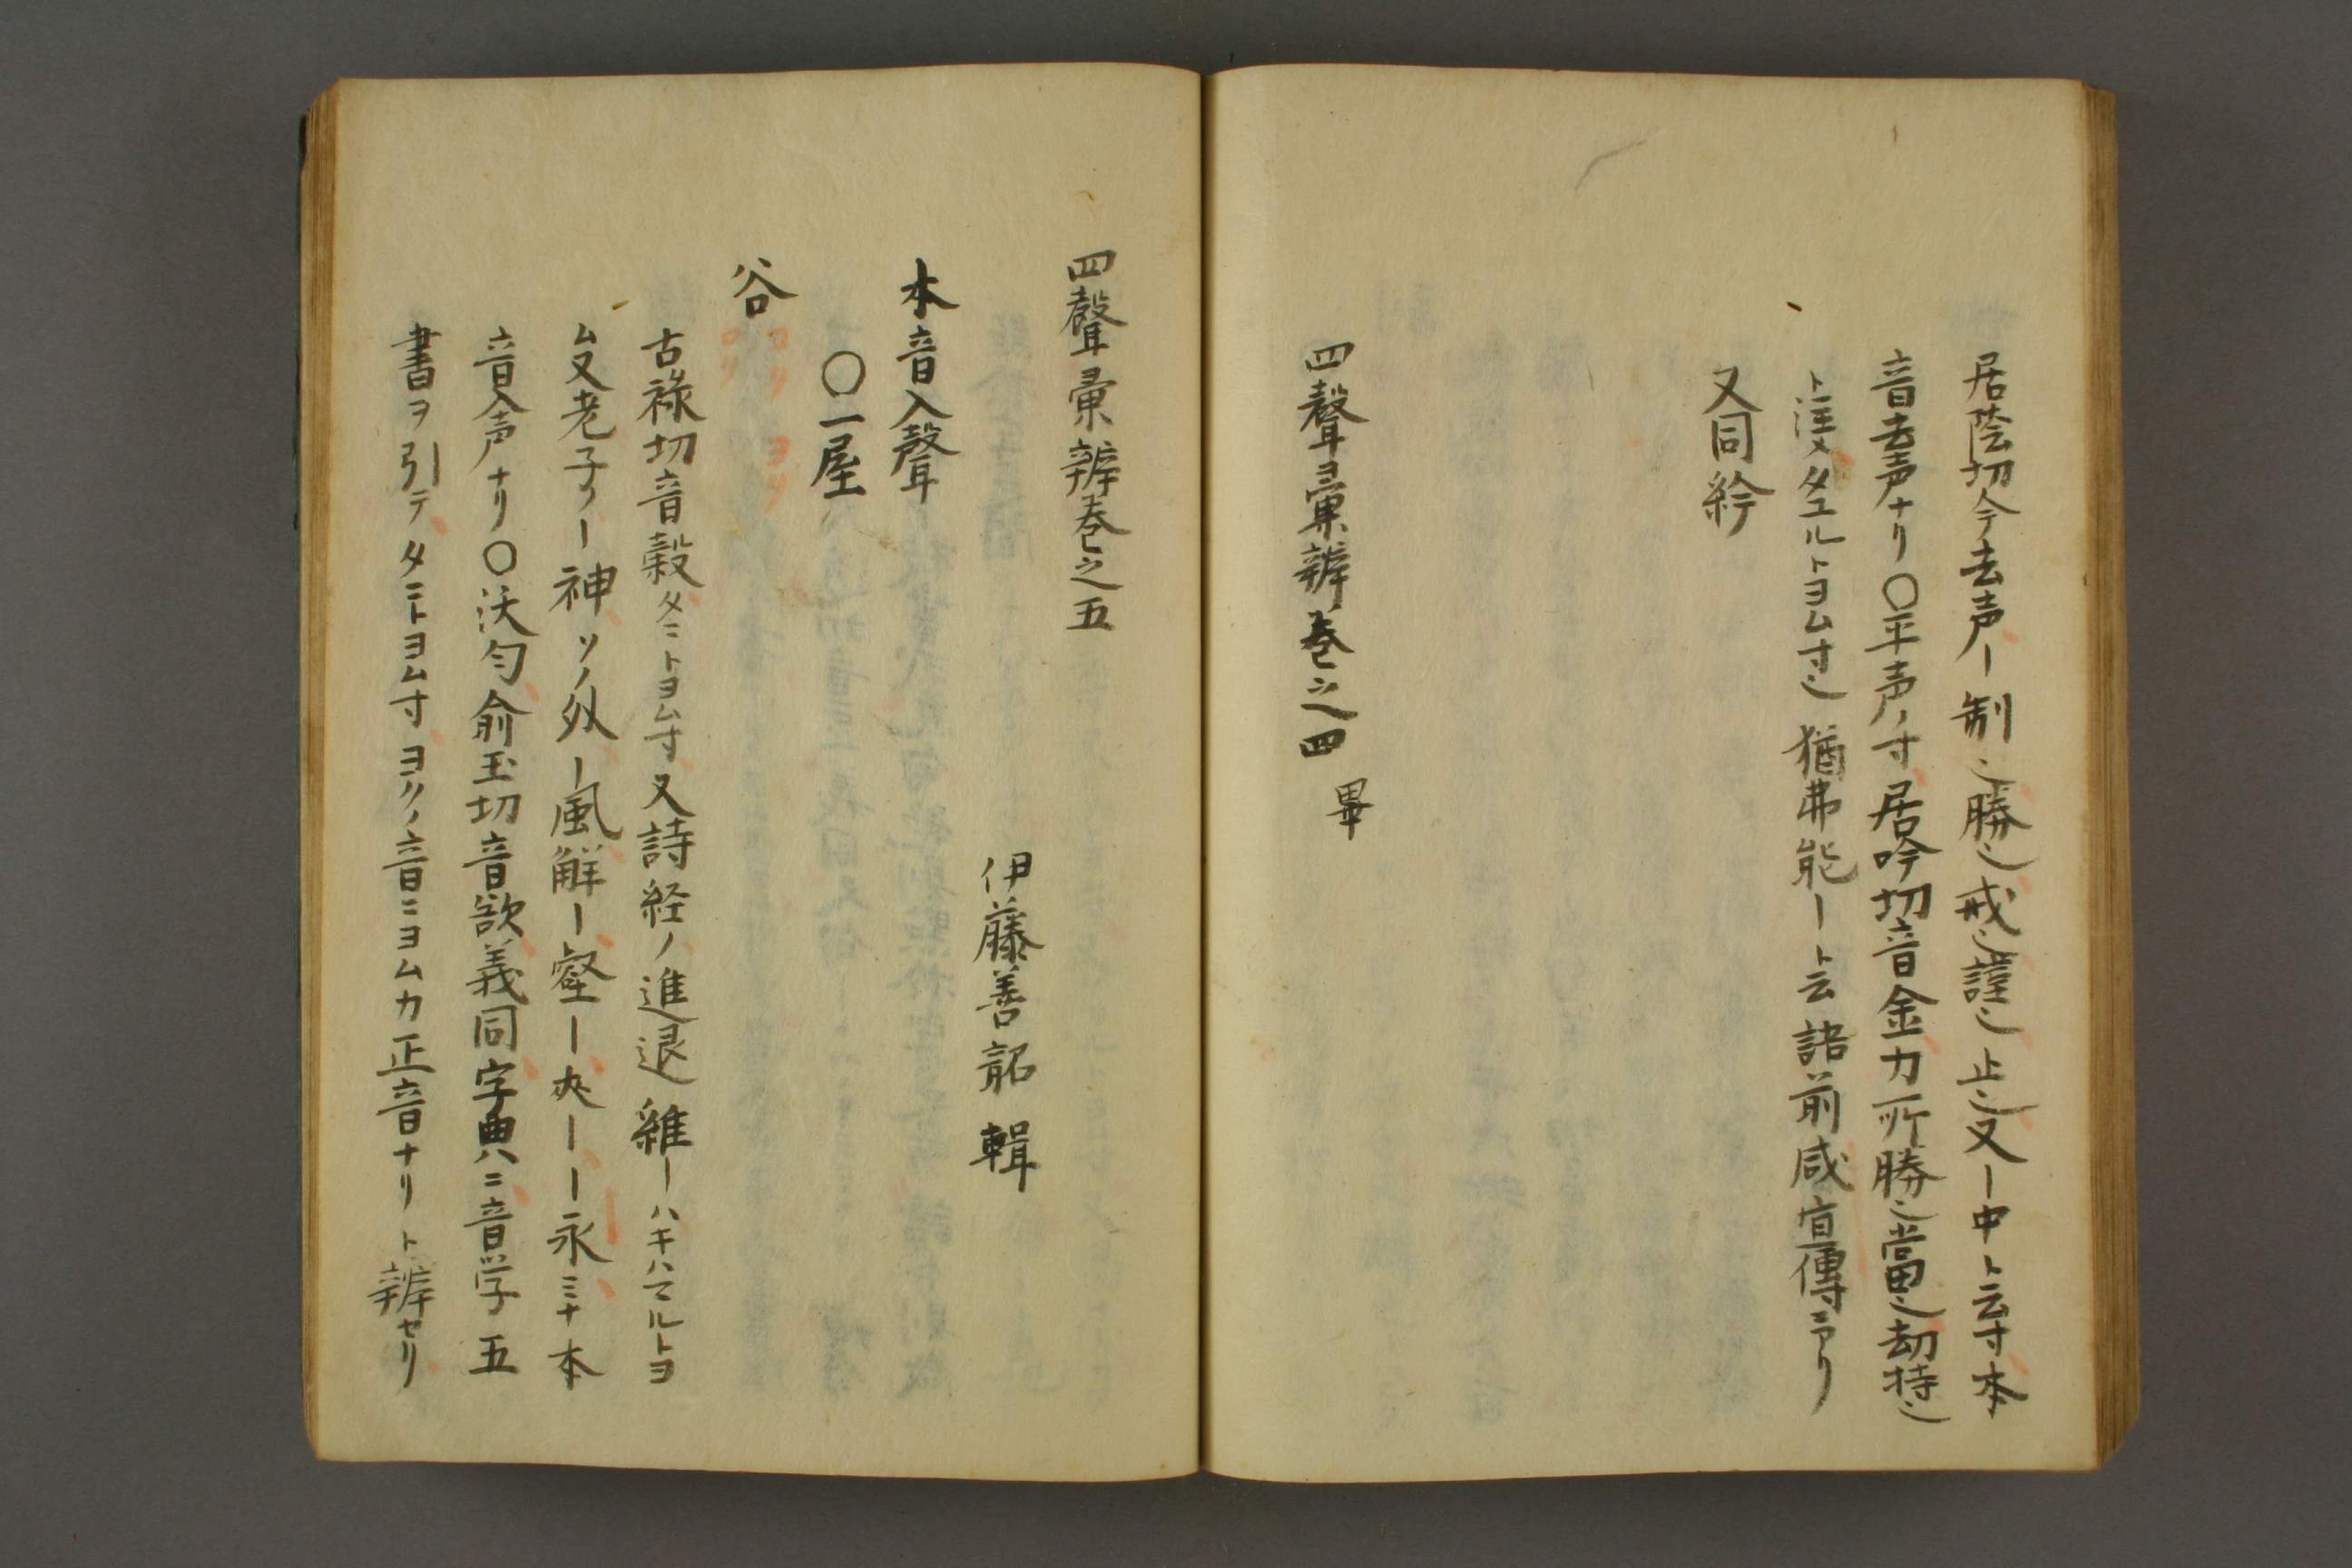 居陰切今去声ー制也勝也戒也謹也止也又ー中ト云寸本
音去声ナリ〇平声ノ寸居吟切音金力所勝也當也劫持也
ト注メタユルトヨム寸也猶弗能ート云諸前咸宣傳ニアリ
又同紟
四聲彙辨巻之四 畢
四聲彙辨巻之五
伊藤善韶輯
本音入聲
〇一屋
谷 コク ヨク ロク
古祿切音穀タニトヨム寸又詩経ノ進退維ーハキハマルトヨ
ム又老子ノー神ソノ外ー風解ー壑ー夾ーー永ミナ本
音入声ナリ〇沃匀俞玉切音欲義同字典ハニ音学五
書ヲ引テタニトヨム寸ヨクノ音ニヨムカ正音ナリト辨セリ